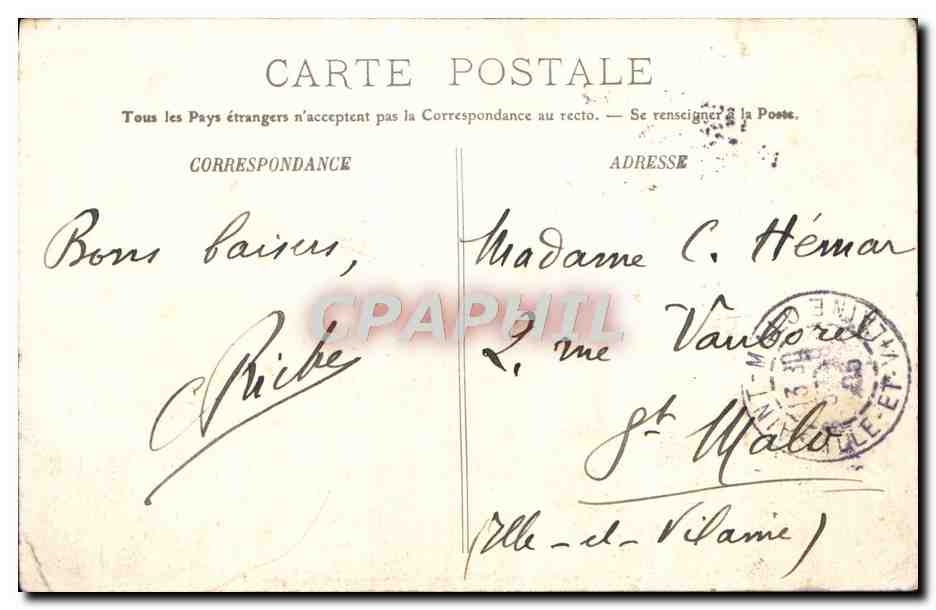 CARTE POSTALE
Tous les Pays étrangers n'acceptent pas la Correspondance au recto. — Se renseigner à la Poste.
CORRESPONDANCE
ADRESSE
Bons baisers,
C Riche
Madame C. Hémar
2, rue Vauborel
St Malo
(Ille-et-Vilaine)
CPARHIL
SAINT-MALO
ILLE-ET-VILAINE